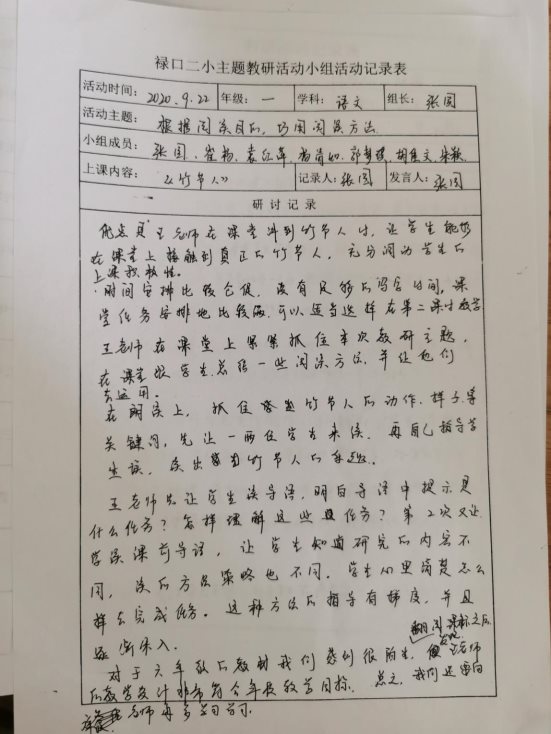 禄口二小主题教研活动小组活动记录表
活动时间： 2020.9.22 年级： 一 学科： 语文 组长： 张园
活动主题： 根据阅读目的，巧用阅读方法
小组成员： 张园、崔杨、袁红萍、杨
上课内容： 《竹节人》 记录人：张园 发言人：张园
研讨记录
王老师在课堂讲到竹节人时，让学生能够
在课堂上接触到真正的竹节人，充分调动学生的
上课积极性。
时间安排比较仓促，没有足够的写字时间，课
堂任务安排地比较满，可以适当选择在第二课时教学
王老师在课堂上紧紧抓住本次教研主题，
在课堂教学生总结一些阅读方法，并让他们
去运用。
在朗读上，抓住竹节人的动作、样子等
关键词，先让一两位学生来读，再自己指导学
生读，读出竹节人的乐趣。
王老师先让学生读导语，明白导语中提示是
什么任务？怎样理解这些任务？第2次又让
学读课前导语，让学生知道研究的内容不
同，读的方法策略也不同。学生心里清楚怎么
样去完成任务。这种方法的指导有梯度，并且
逐渐深入。
翻阅课标之后
对于六年级的教材我们感到很陌生，发现王老师
的教学设计非常符合年段教学目标。总之，我们还需向
老师再多学习学习。